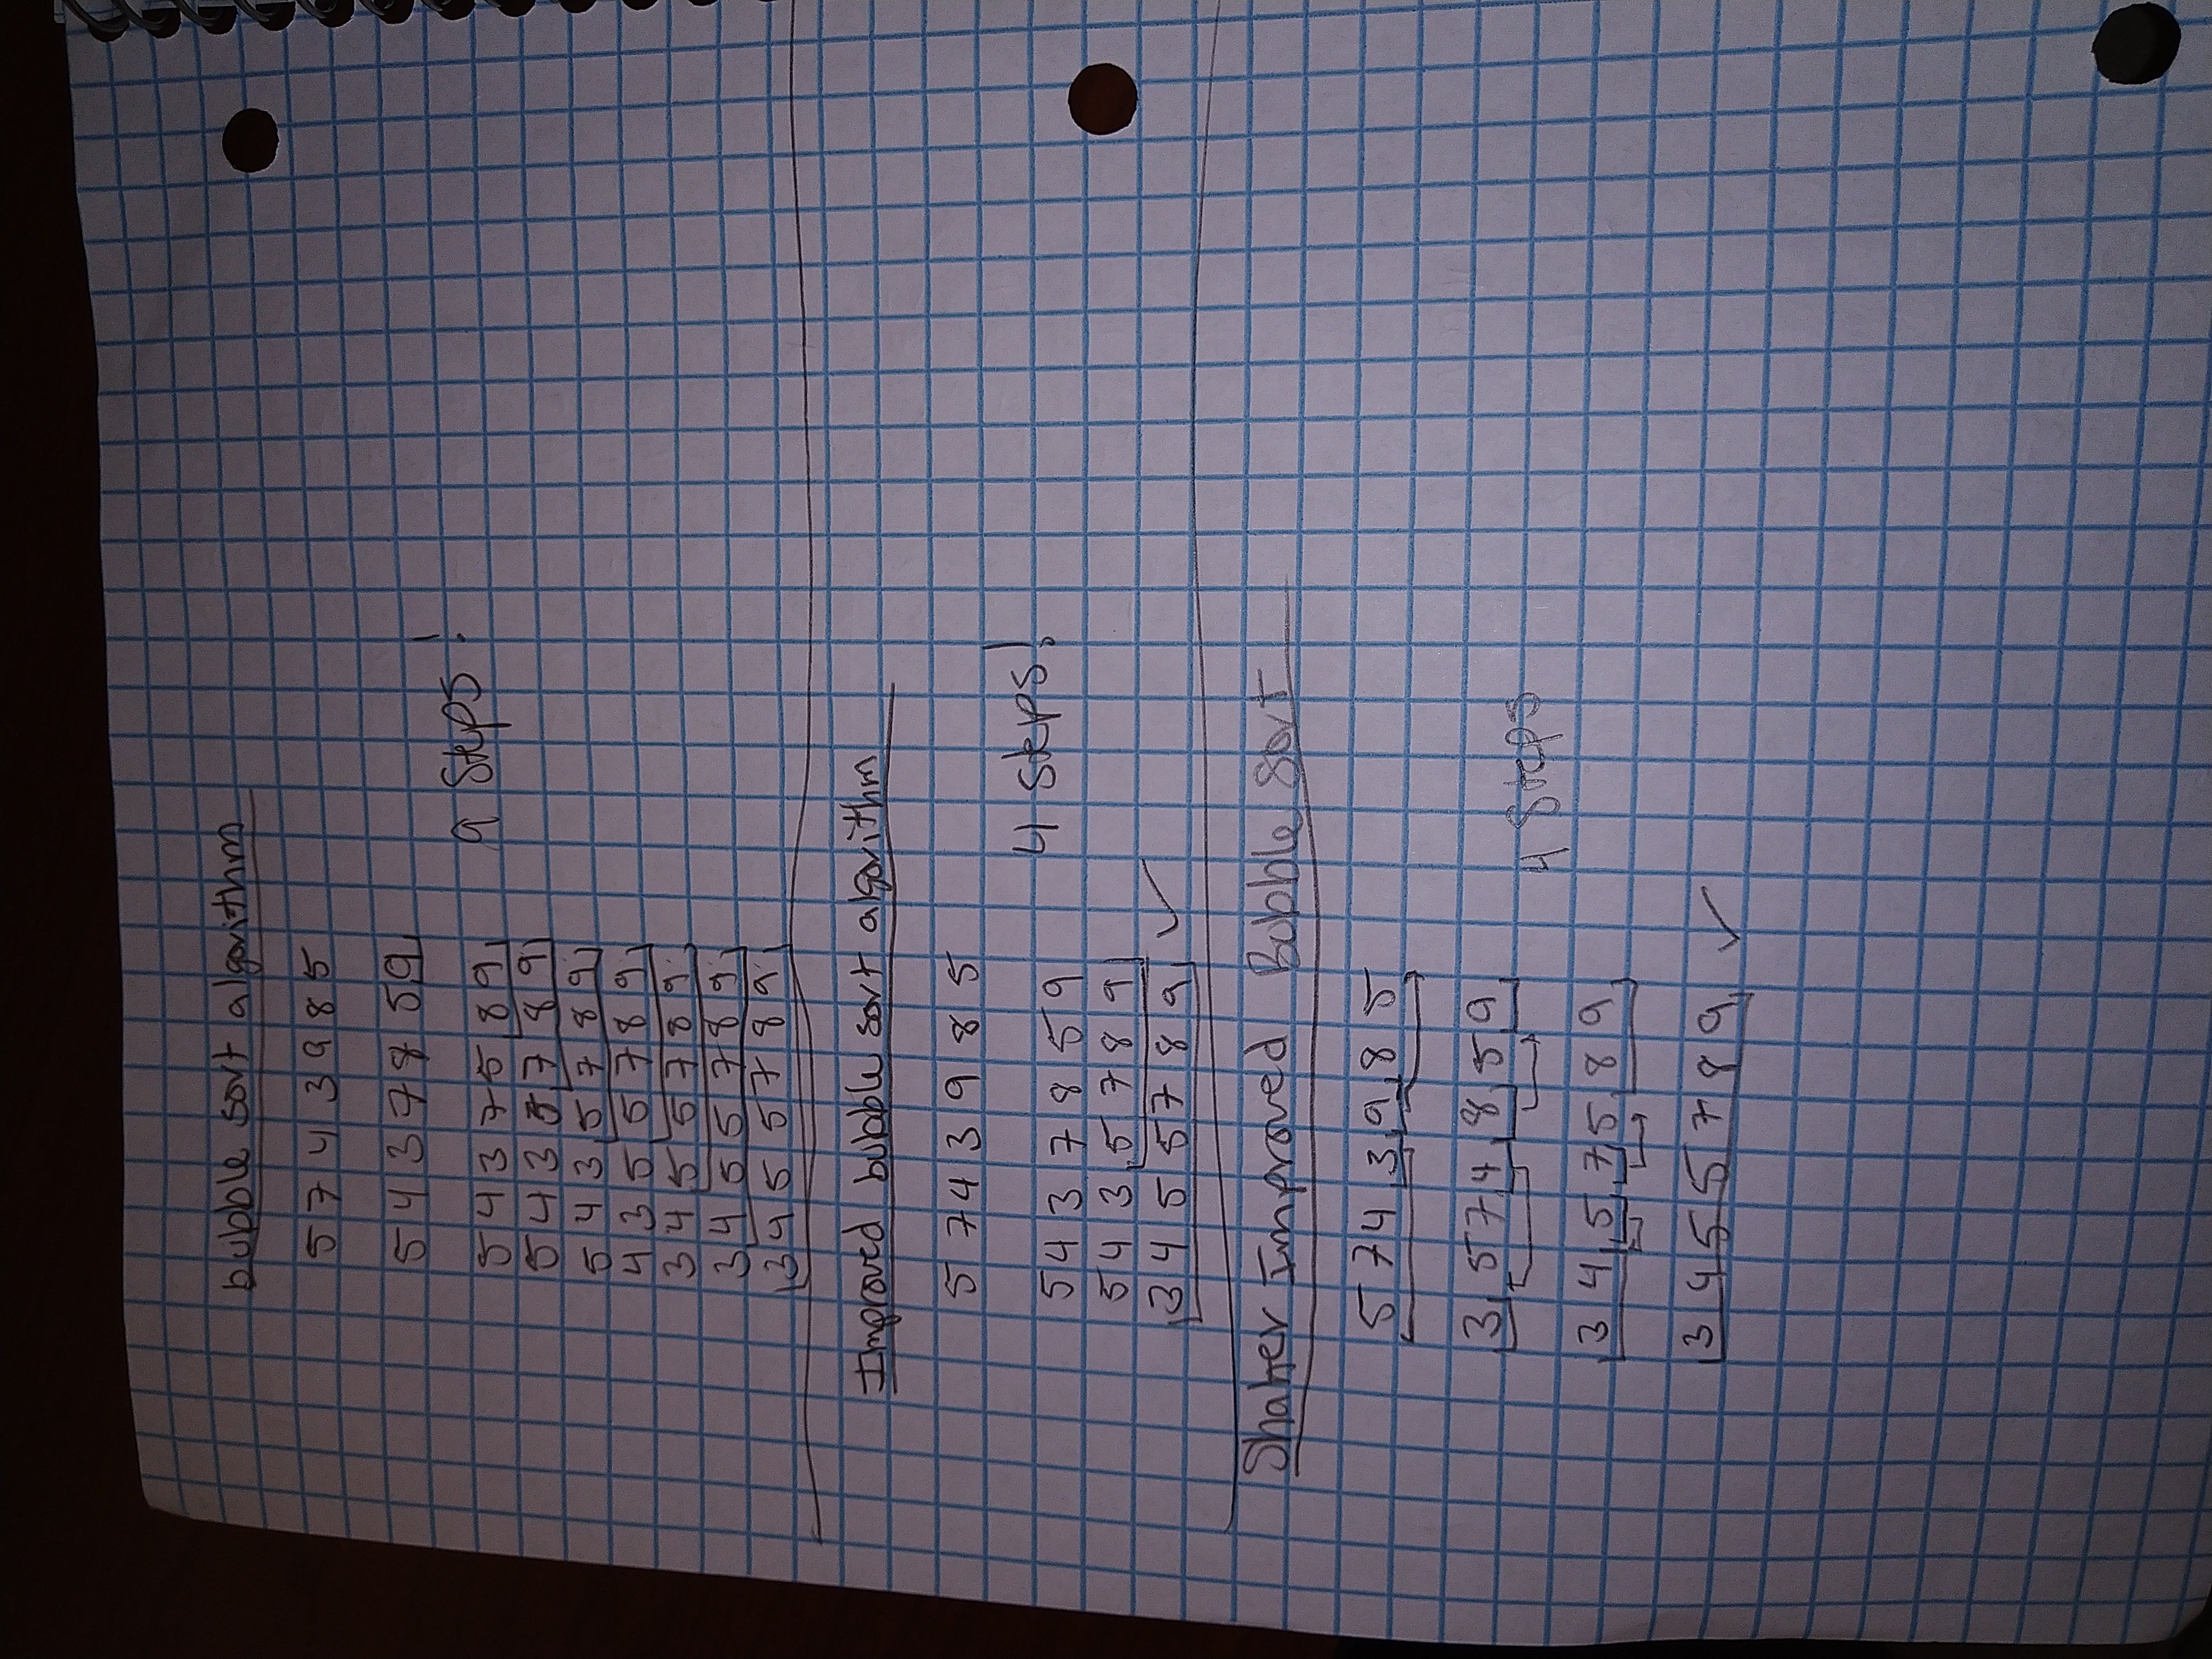 bubble sort algorithm
5 7 4 3 9 8 5
5 4 3 7 8 5 9
9 steps!
5 4 3 7 5 8 9
5 4 3 5 7 8 9
5 4 3 5 7 8 9
4 3 5 5 7 8 9
3 4 5 5 7 8 9
3 4 5 5 7 8 9
3 4 5 5 7 8 9
Improved bubble sort algorithm
5 7 4 3 9 8 5
4 steps!
5 4 3 7 8 5 9
5 4 3 5 7 8 9
3 4 5 5 7 8 9 ✓
Shaker Improved Bubble Sort
5 7 4 3 9 8 5
3 5 7 4 8 5 9
4 Steps
3 4 5 7 5 8 9
3 4 5 5 7 8 9 ✓